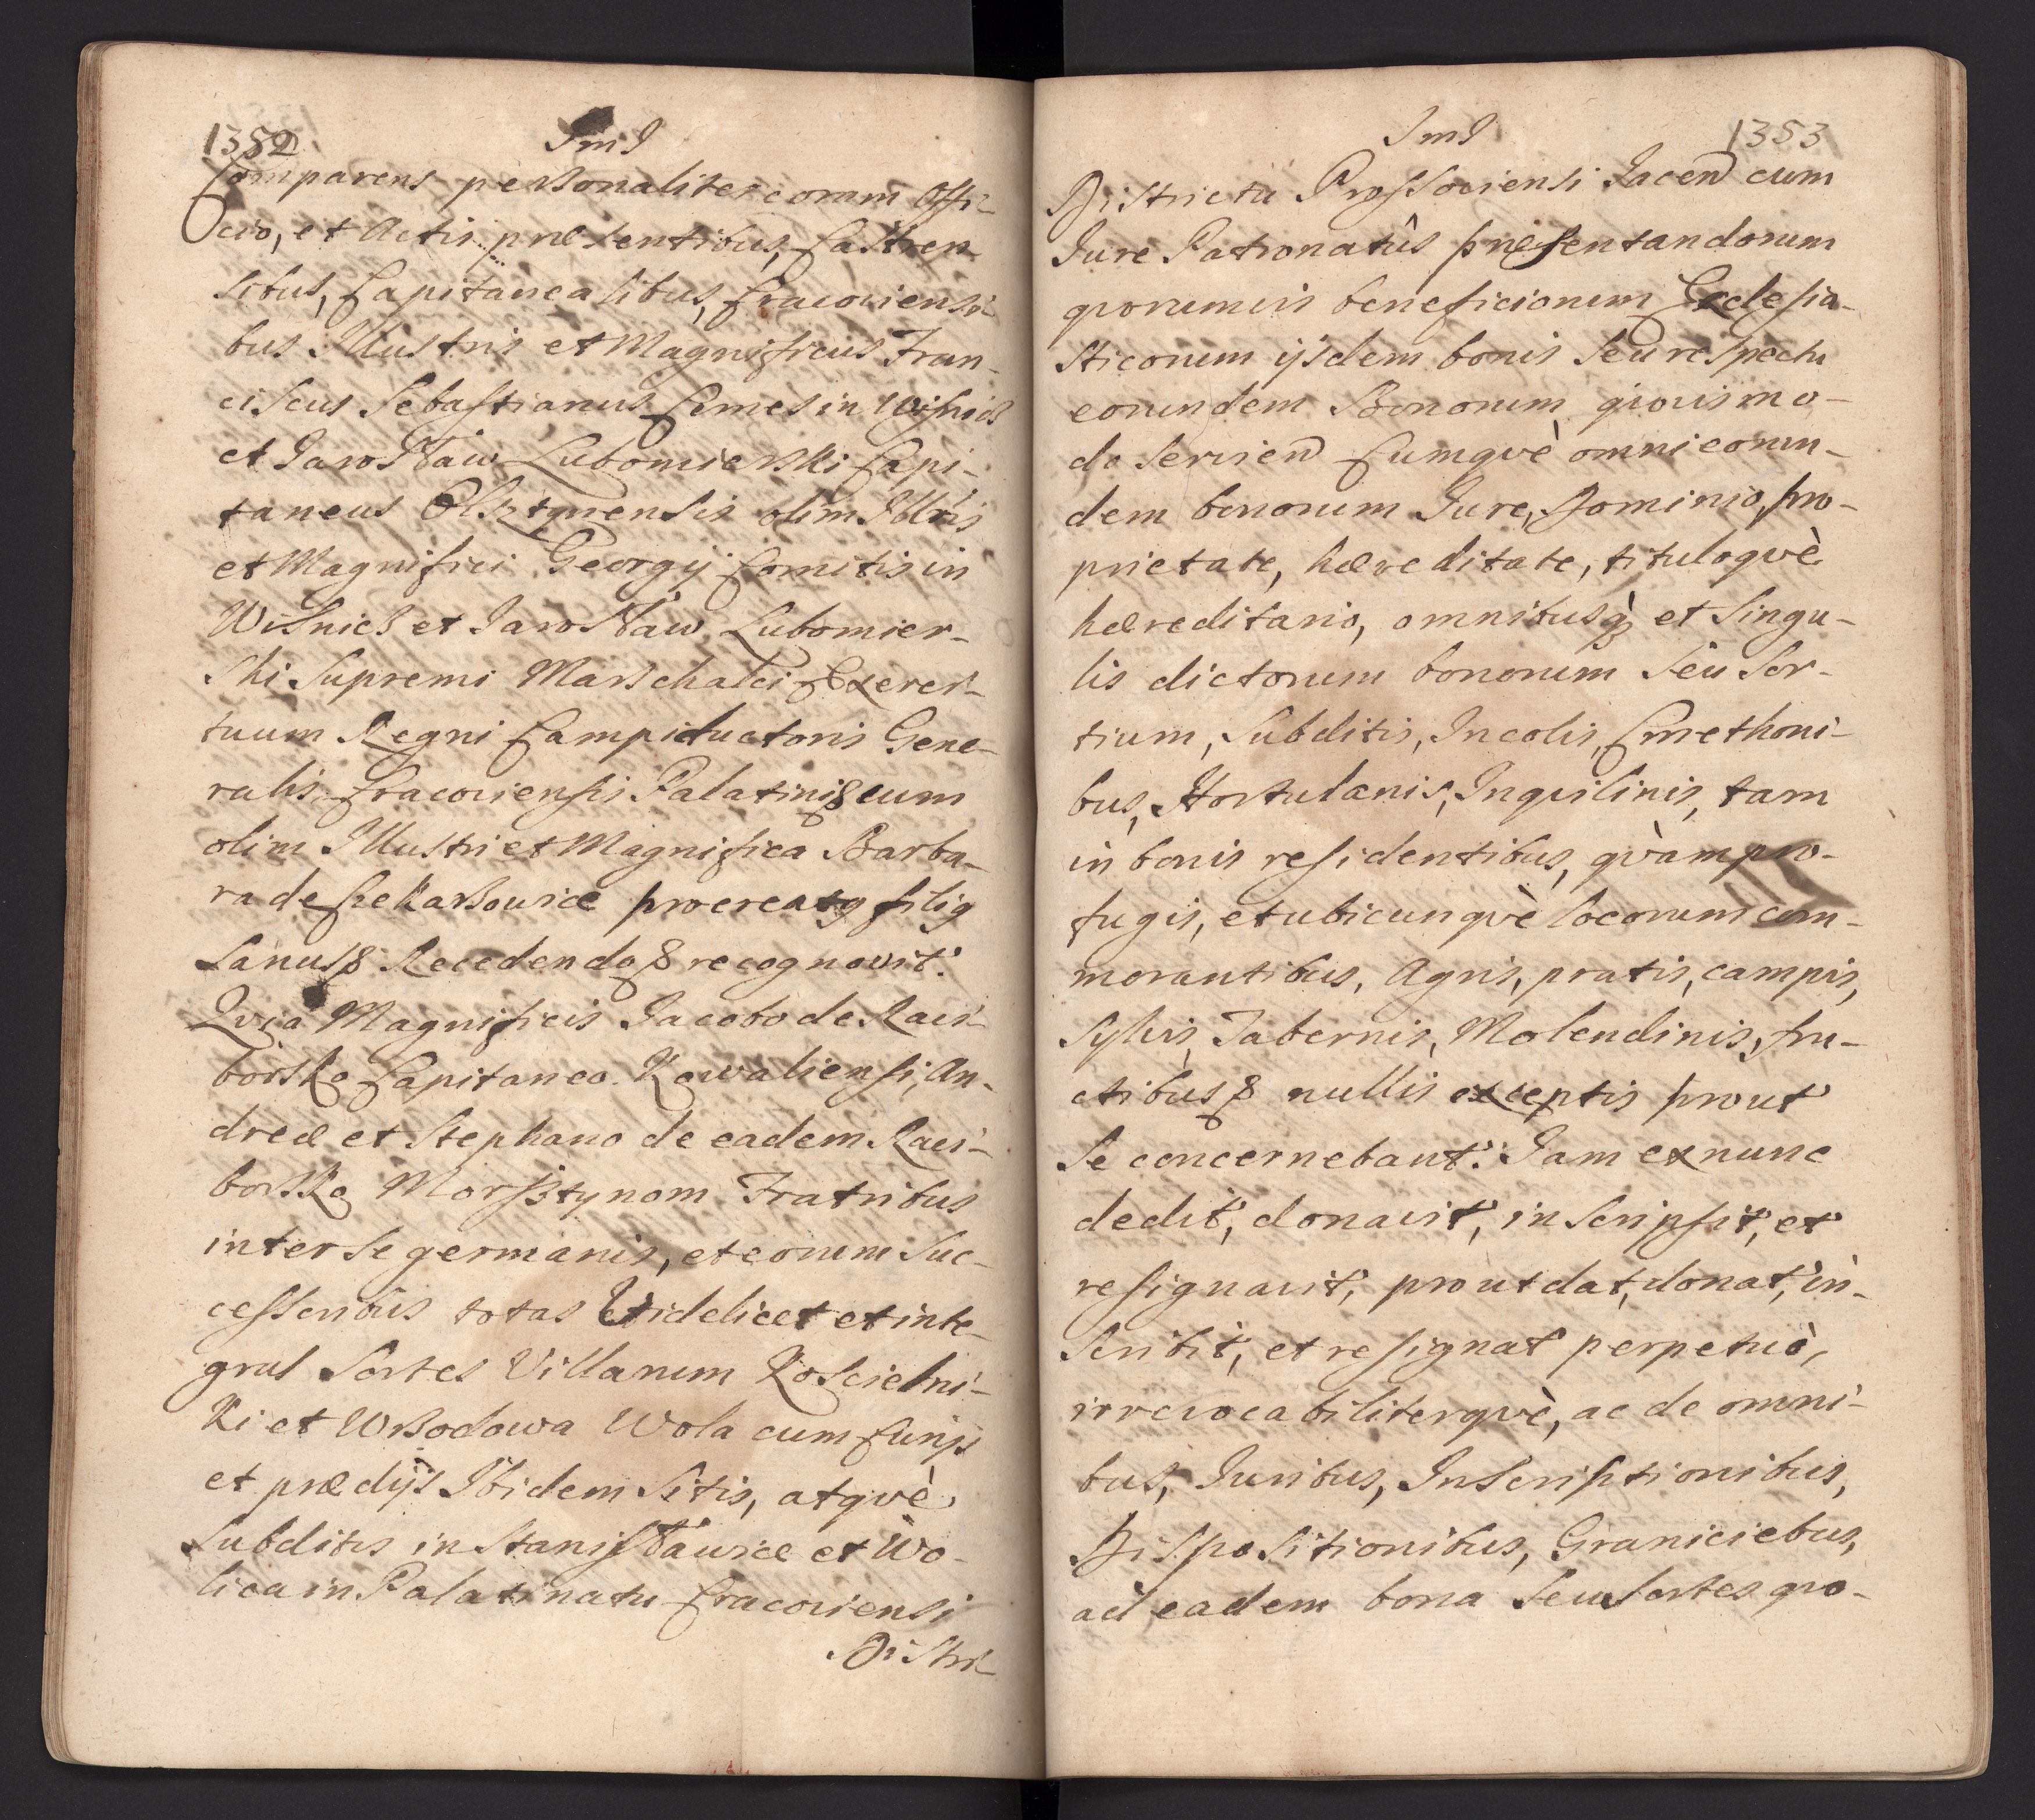 1352.
SmJ
Comparens personaliter coram Offi-
cio, et Actis præsentibus, Castren-
sibus, Capitanealibus, Cracoviensi-
bus Illustris et Magnificus Fran-
ciscus Sebastianus Comes in Wisnicz
et Jarosław Lubomierski Capi-
taneus Olsztynensis olim Illris
et Magnifici Georgij Comitis in
Wisnicz et Jarosław Lubomier-
ski Supremi Marschalci Exerci-
tuum Regni Campiductoris Gene-
ralis, Cracoviensis Palatini & cum
olim Illustri et Magnifica Barba-
ra de Czekarzowice procreatg filig
Sanus & Recedendo & recognovit.
Qvia Magnificis Jacobo de Raci-
borsko Capitaneo Kowaliensi, An-
dreæ et Stephano de eadem Raci-
borsko Morsztynom Fratribus
inter se germanis, et eorum Suc-
cessoribus totas Videlicet et inte-
gras Sortes Villarum Koscielni-
ki et Wrzodowa Wola cum Curijs
et prædijs Ibidem Sitis, atqvè
Subditis in Stanisławice et Wo-
lica in Palatinatu Cracoviensi
Distri-
SmJ
1353
Districtu Prossoviensi Jacen cum
Jure Patronatûs præsentandorum
qvorumvis beneficiorum Ecclesia-
sticorum ijsdem bonis Seu respectu
eorundem Bonorum qvovismo-
do Servien Cumqvè omni eorun-
dem bonorum Jure, Dominio, pro-
prietate, hæreditate, tituloqvè
hæreditario, omnibusq; et Singu-
lis dictorum bonorum Seu Sor-
tium, Subditis, Incolis, Cmethoni-
bus, Hortulanis, Inqvilinis, tam
in bonis residentibus, qvàm pro-
fugis, et ubicunqvè locorum com-
morantibus, Agris, pratis, campis,
Sylvis, Tabernis, Molendinis, fru-
ctibus & nullis exceptis prout
Se concernebant. Jam ex nunc
dedit, donavit, inscripsit, et
resignavit, prout dat, donat, in-
scribit, et resignat perpetuò,
irrevocabiliterqvè, ac de omni-
bus, Juribus, Inscriptionibus,
Dispositionibus, Graniciebus,
ad eadem bona Seu Sortes qvo-